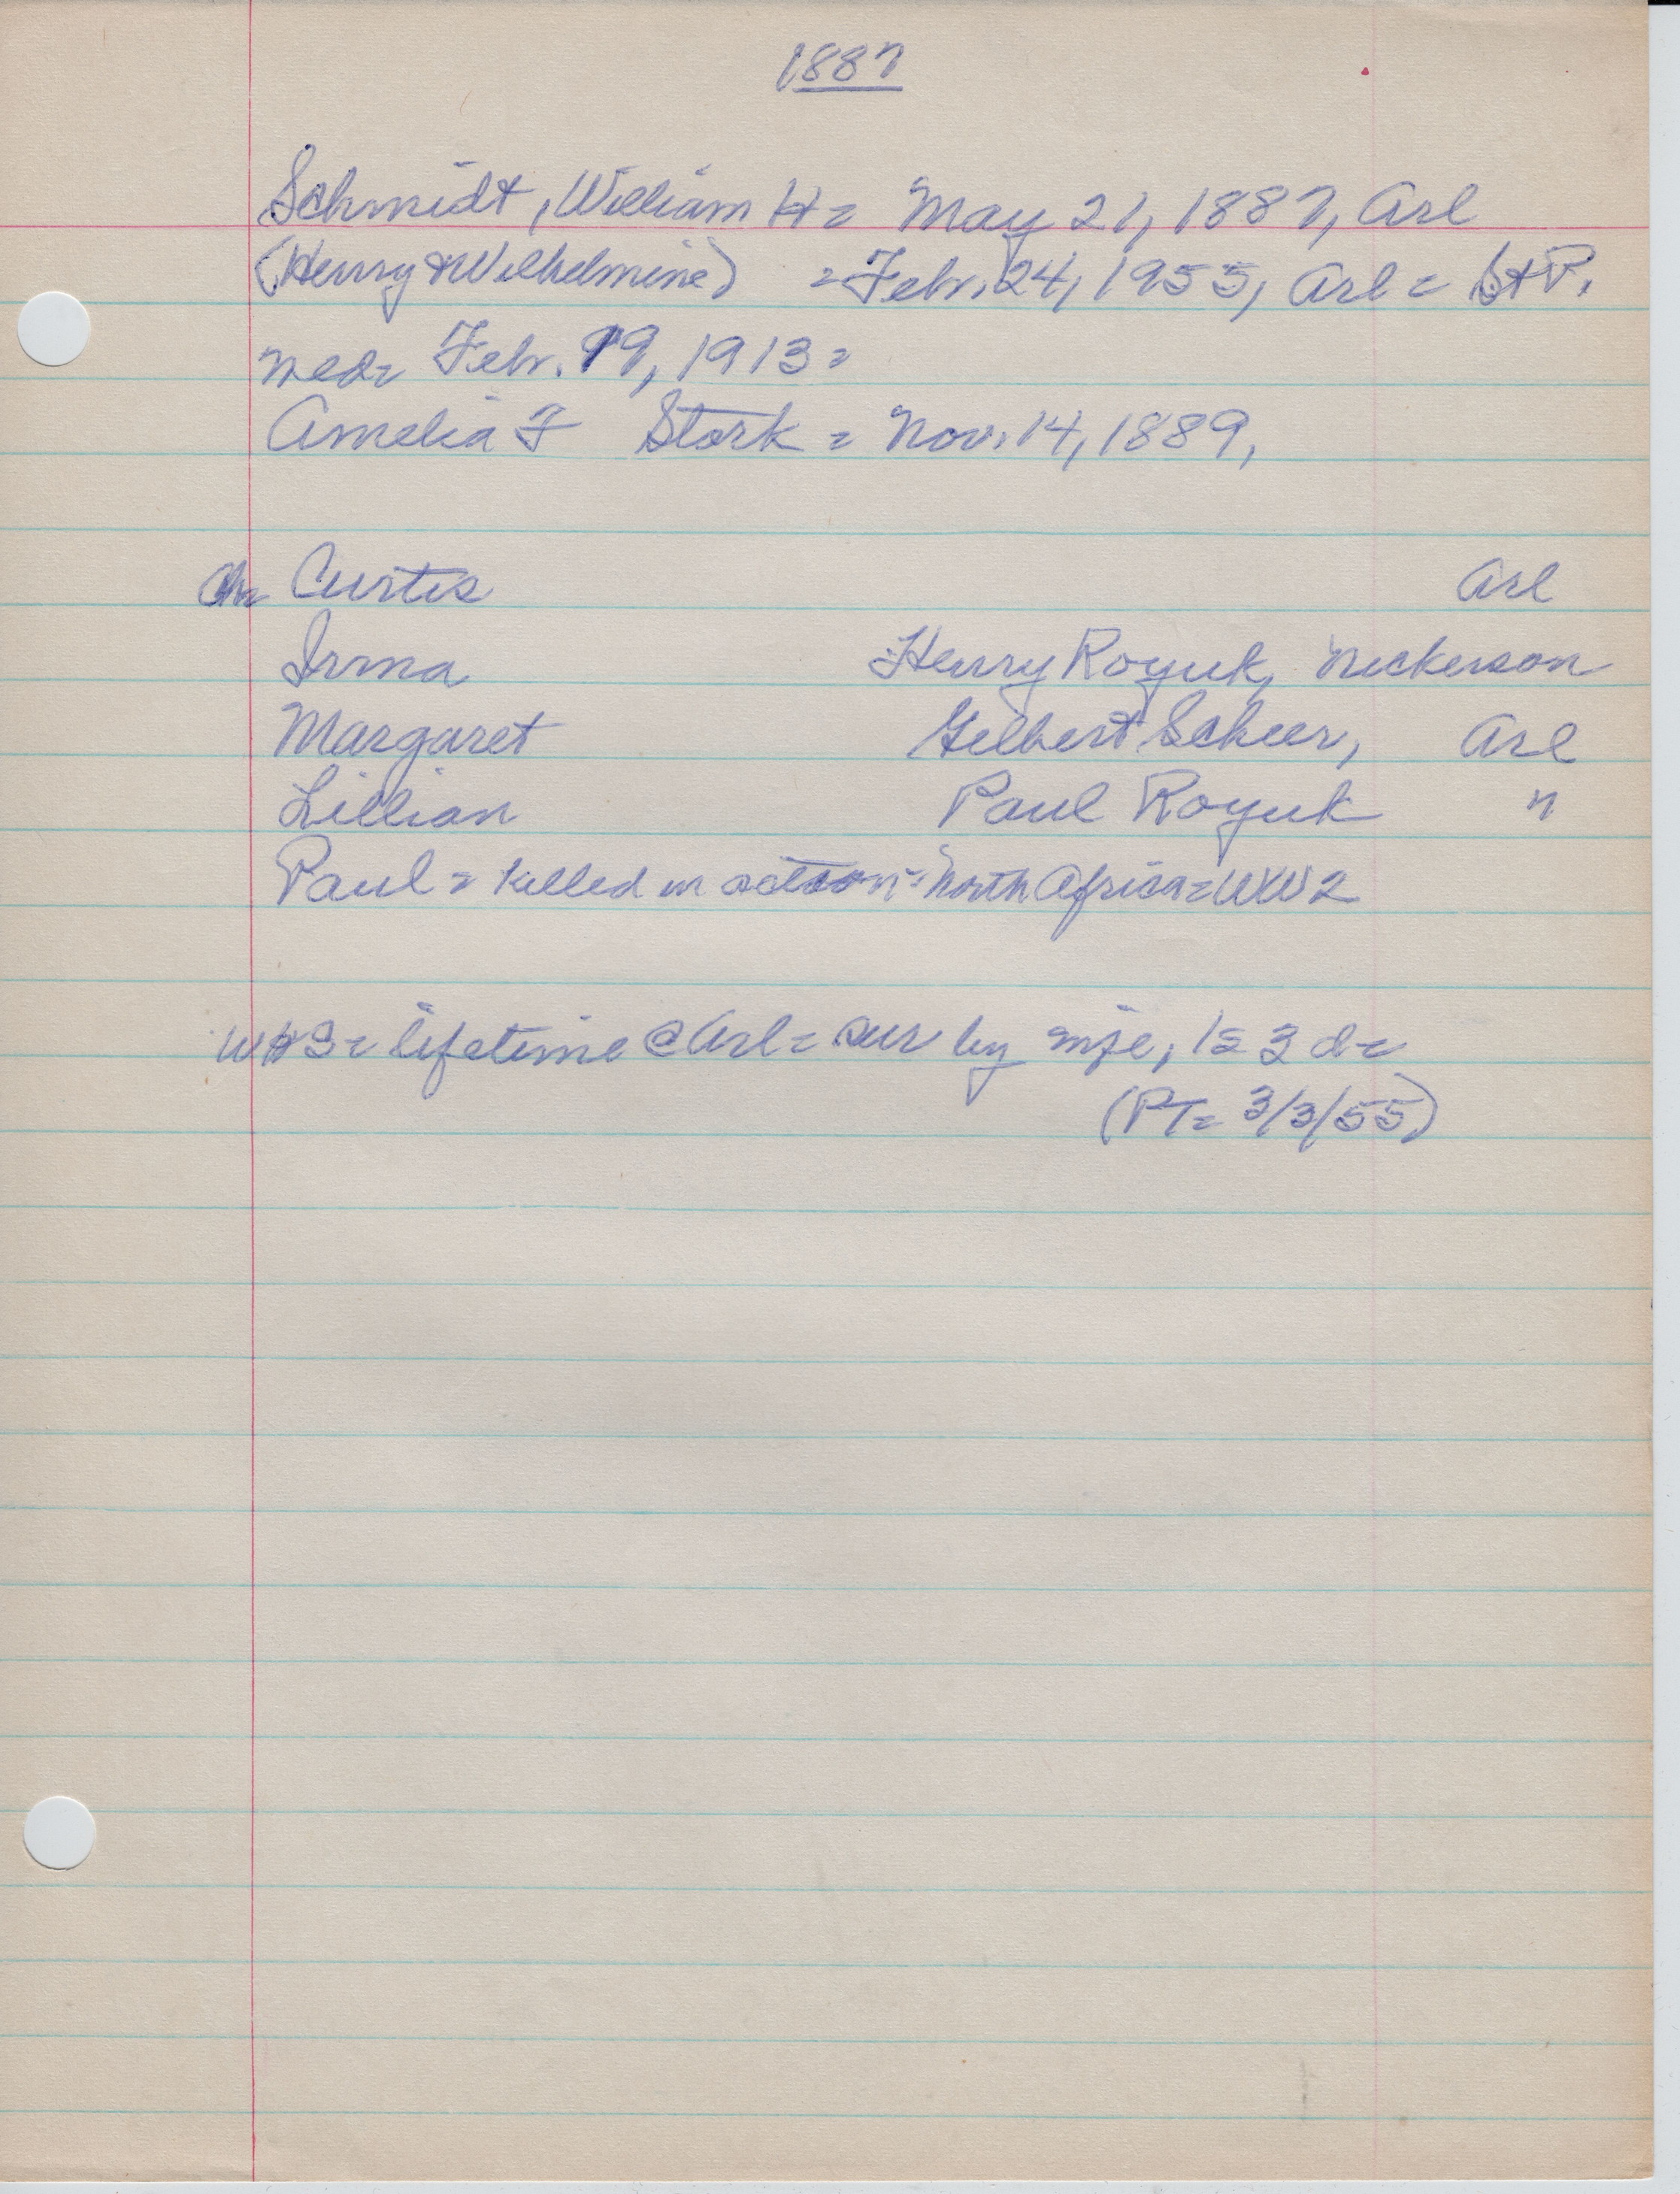 1887
Schmidt, William H = May 21, 1887, Arl
(Henry & Wilhelmine) = Febr. 24, 1955, Arl = St P.
med= Febr. 19, 1913 =
Amelia F Stork = Nov. 14, 1889,
Ch= Curtis Arl
Irma Henry Royuk, Nickerson
Margaret Gilbert Scheer, Arl
Lillian Paul Royuk "
Paul = killed in action = North Africa = WW2
WHS = lifetime @ Arl = sur by wife, 1s 3 d =
(PT= 3/3/55)